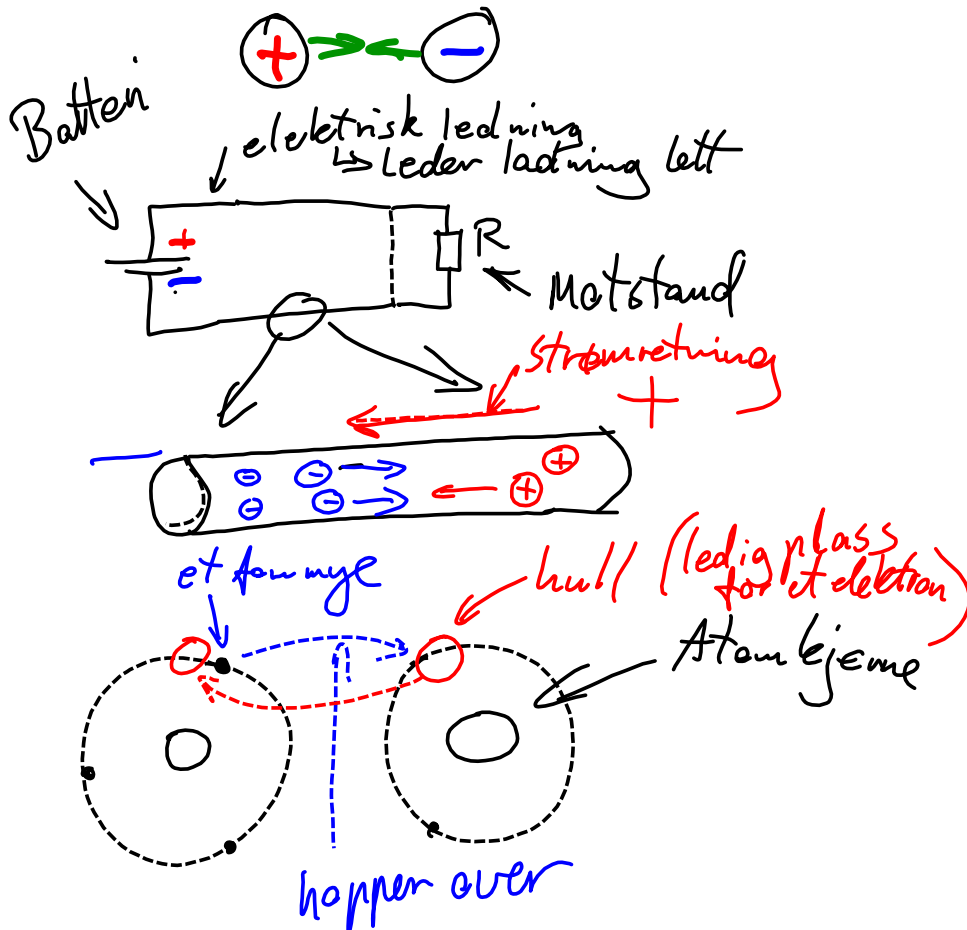 + −
Batteri
elektrisk ledning
↳ Leder ladning lett
+
−
R
Motstand
strømretning
+
−
− − + +
− − +
et for mye
hull (ledig plass
for et elektron)
Atomkjerne
hopper over